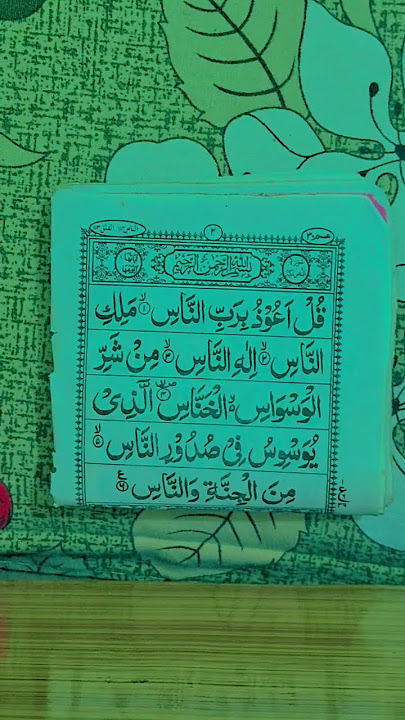 الناس ١١٤
٢
عم ٣٠
بسم الله الرحمن الرحيم
قُلْ اَعُوْذُ بِرَبِّ النَّاسِ ۙ‏﴿۱﴾ مَلِكِ
النَّاسِ ۙ‏﴿۲﴾ اِلٰهِ النَّاسِ ۙ‏﴿۳﴾ مِنْ شَرِّ
الْوَسْوَاسِ ۙ الْخَنَّاسِ ۪ۙ‏﴿۴﴾ الَّذِیْ
یُوَسْوِسُ فِیْ صُدُوْرِ النَّاسِ ۙ‏﴿۵﴾
مِنَ الْجِنَّةِ وَالنَّاسِ ﴿۶﴾